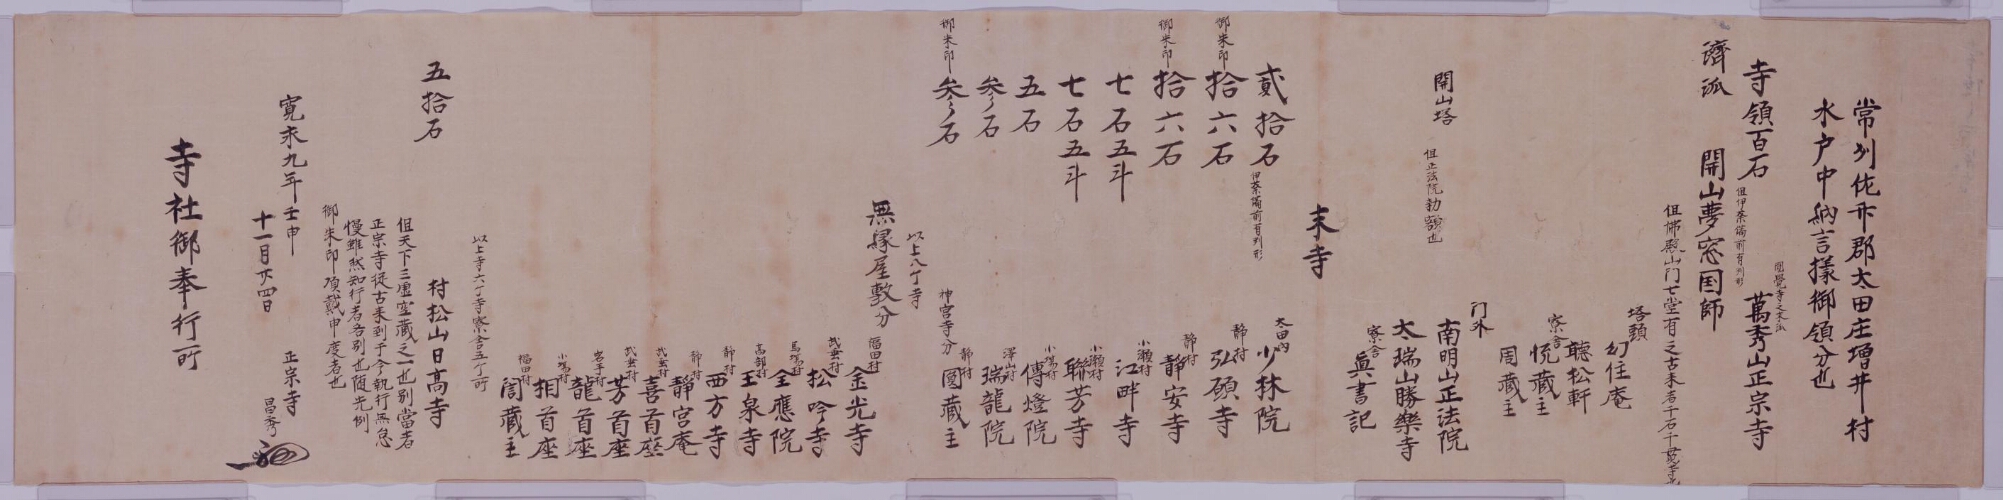 常州佐卞郡太田庄増井村
水戸中納言様御領分也
寺領百石 但伊奈備前有判形
円覚寺之末派
萬秀山正宗寺
済派 開山夢窓国師
但佛殿山门七堂有之古来者千石千貫寺也
塔頭
幻住庵
聴松軒
寮舎
悦蔵主
周蔵主
门外
南明山正法院
開山塔 但正法院勅額也
太瑞山勝樂寺
寮舎
眞書記
末寺
貳拾石 伊奈備前有判形 太田内 少林院
御朱印 拾六石 静村 弘願寺
御朱印 拾六石 静村 静安寺
七石五斗 小瀬村 江畔寺
七石五斗 小瀬村 聯芳寺
五石 小場村 傳燈院
参石 澤山村 瑞龍院
御朱印 参石 神宮寺分 静村 圓蔵主
以上八ケ寺
無縁屋敷分
福田村 金光寺
武茂村 松吟寺
馬場村 全應院
高部村 玉泉寺
静村 西方寺
静村 静宮庵
武茂村 喜首座
武茂村 芳首座
岩手村 龍首座
小場村 相首座
福田村 訚蔵主
以上寺六ケ寺寮舎五ケ所
五拾石 村松山日高寺
但天下三虚空蔵之一也別當者
正宗寺従古来到于今執行無怠
慢雖然知行者各別也随先例
御朱印頂戴申度者也
寛永九年壬申
十一月廿四日 正宗寺
昌秀
寺社御奉行所